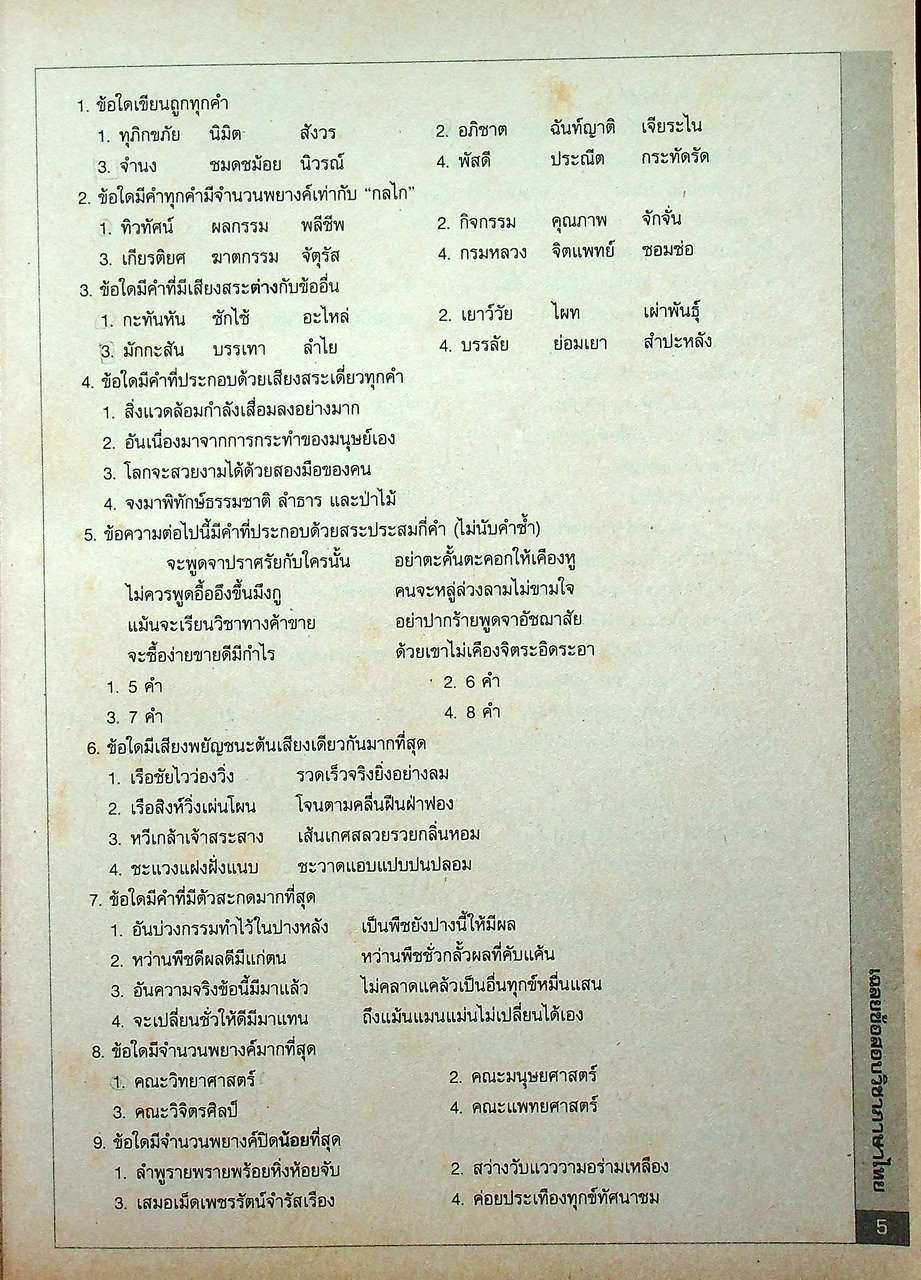 1. ข้อใดเขียนถูกทุกคำ
1. ทุภิกขภัย นิมิต สังวร 2. อภิชาต ฉันท์ญาติ เจียระไน
3. จำนง ชมดชม้อย นิวรณ์ 4. พัสดี ประณีต กระทัดรัด
2. ข้อใดมีคำทุกคำมีจำนวนพยางค์เท่ากับ “กลไก”
1. ทิวทัศน์ ผลกรรม พลีชีพ 2. กิจกรรม คุณภาพ จักจั่น
3. เกียรติยศ ฆาตกรรม จัตุรัส 4. กรมหลวง จิตแพทย์ ซอมซ่อ
3. ข้อใดมีคำที่มีเสียงสระต่างกับข้ออื่น
1. กะทันหัน ซักไซ้ อะไหล่ 2. เยาว์วัย ไผท เผ่าพันธุ์
3. มักกะสัน บรรเทา ลำไย 4. บรรลัย ย่อมเยา สำปะหลัง
4. ข้อใดมีคำที่ประกอบด้วยเสียงสระเดี่ยวทุกคำ
1. สิ่งแวดล้อมกำลังเสื่อมลงอย่างมาก
2. อันเนื่องมาจากการกระทำของมนุษย์เอง
3. โลกจะสวยงามได้ด้วยสองมือของคน
4. จงมาพิทักษ์ธรรมชาติ ลำธาร และป่าไม้
5. ข้อความต่อไปนี้มีคำที่ประกอบด้วยสระประสมกี่คำ (ไม่นับคำซ้ำ)
จะพูดจาปราศรัยกับใครนั้น อย่าตะคั้นตะคอกให้เคืองหู
ไม่ควรพูดอื้ออึงขึ้นมึงกู คนจะหลู่ล่วงลามไม่ขามใจ
แม้นจะเรียนวิชาทางค้าขาย อย่าปากร้ายพูดจาอัชฌาสัย
จะซื้อง่ายขายดีมีกำไร ด้วยเขาไม่เคืองจิตระอิดระอา
1. 5 คำ 2. 6 คำ
3. 7 คำ 4. 8 คำ
6. ข้อใดมีเสียงพยัญชนะต้นเสียงเดียวกันมากที่สุด
1. เรือชัยไวว่องวิ่ง รวดเร็วจริงยิ่งอย่างลม
2. เรือสิงห์วิ่งเผ่นโผน โจนตามคลื่นฝืนฝ่าฟอง
3. หวีเกล้าเจ้าสระสาง เส้นเกศสลวยรวยกลิ่นหอม
4. ชะแวงแฝงฝั่งแนบ ชะวาดแอบแปบปนปลอม
7. ข้อใดมีคำที่มีตัวสะกดมากที่สุด
1. อันบ่วงกรรมทำไว้ในปางหลัง เป็นพืชยังปางนี้ให้มีผล
2. หว่านพืชดีผลดีมีแก่ตน หว่านพืชชั่วกลั้วผลที่คับแค้น
3. อันความจริงข้อนี้มีมาแล้ว ไม่คลาดแคล้วเป็นอื่นทุกข์หมื่นแสน
4. จะเปลี่ยนชั่วให้ดีมีมาแทน ถึงแม้นแมนแม่นไม่เปลี่ยนได้เอง
8. ข้อใดมีจำนวนพยางค์มากที่สุด
1. คณะวิทยาศาสตร์ 2. คณะมนุษยศาสตร์
3. คณะวิจิตรศิลป์ 4. คณะแพทยศาสตร์
9. ข้อใดมีจำนวนพยางค์ปิดน้อยที่สุด
1. ลำพูรายพรายพร้อยหิ่งห้อยจับ 2. สว่างวับแวววามอร่ามเหลือง
3. เสมอเม็ดเพชรรัตน์จำรัสเรือง 4. ค่อยประเทืองทุกข์ทัศนาชม
เฉลยข้อสอบวิชาภาษาไทย
5